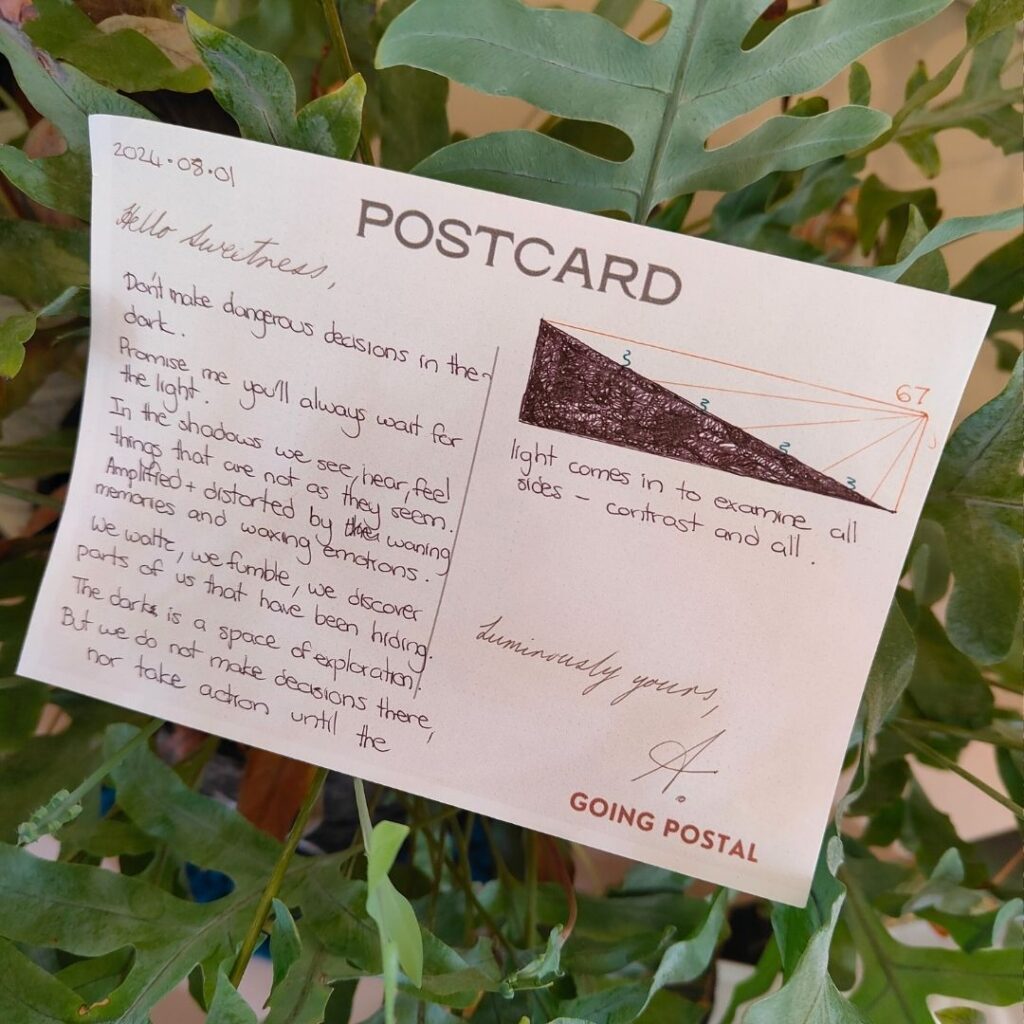 2024.08.01
POSTCARD
Hello Sweetness,
Don't make dangerous decisions in the
dark.
Promise me you'll always wait for
the light.
In the shadows we see, hear, feel
things that are not as they seem.
Amplified + distorted by the waning
memories and waxing emotions.
We waltz, we fumble, we discover
parts of us that have been hiding.
The dark is a space of exploration.
But we do not make decisions there,
nor take action until the
67
3
3
3
3
light comes in to examine all
sides - contrast and all.
Luminously yours,
A.
GOING POSTAL